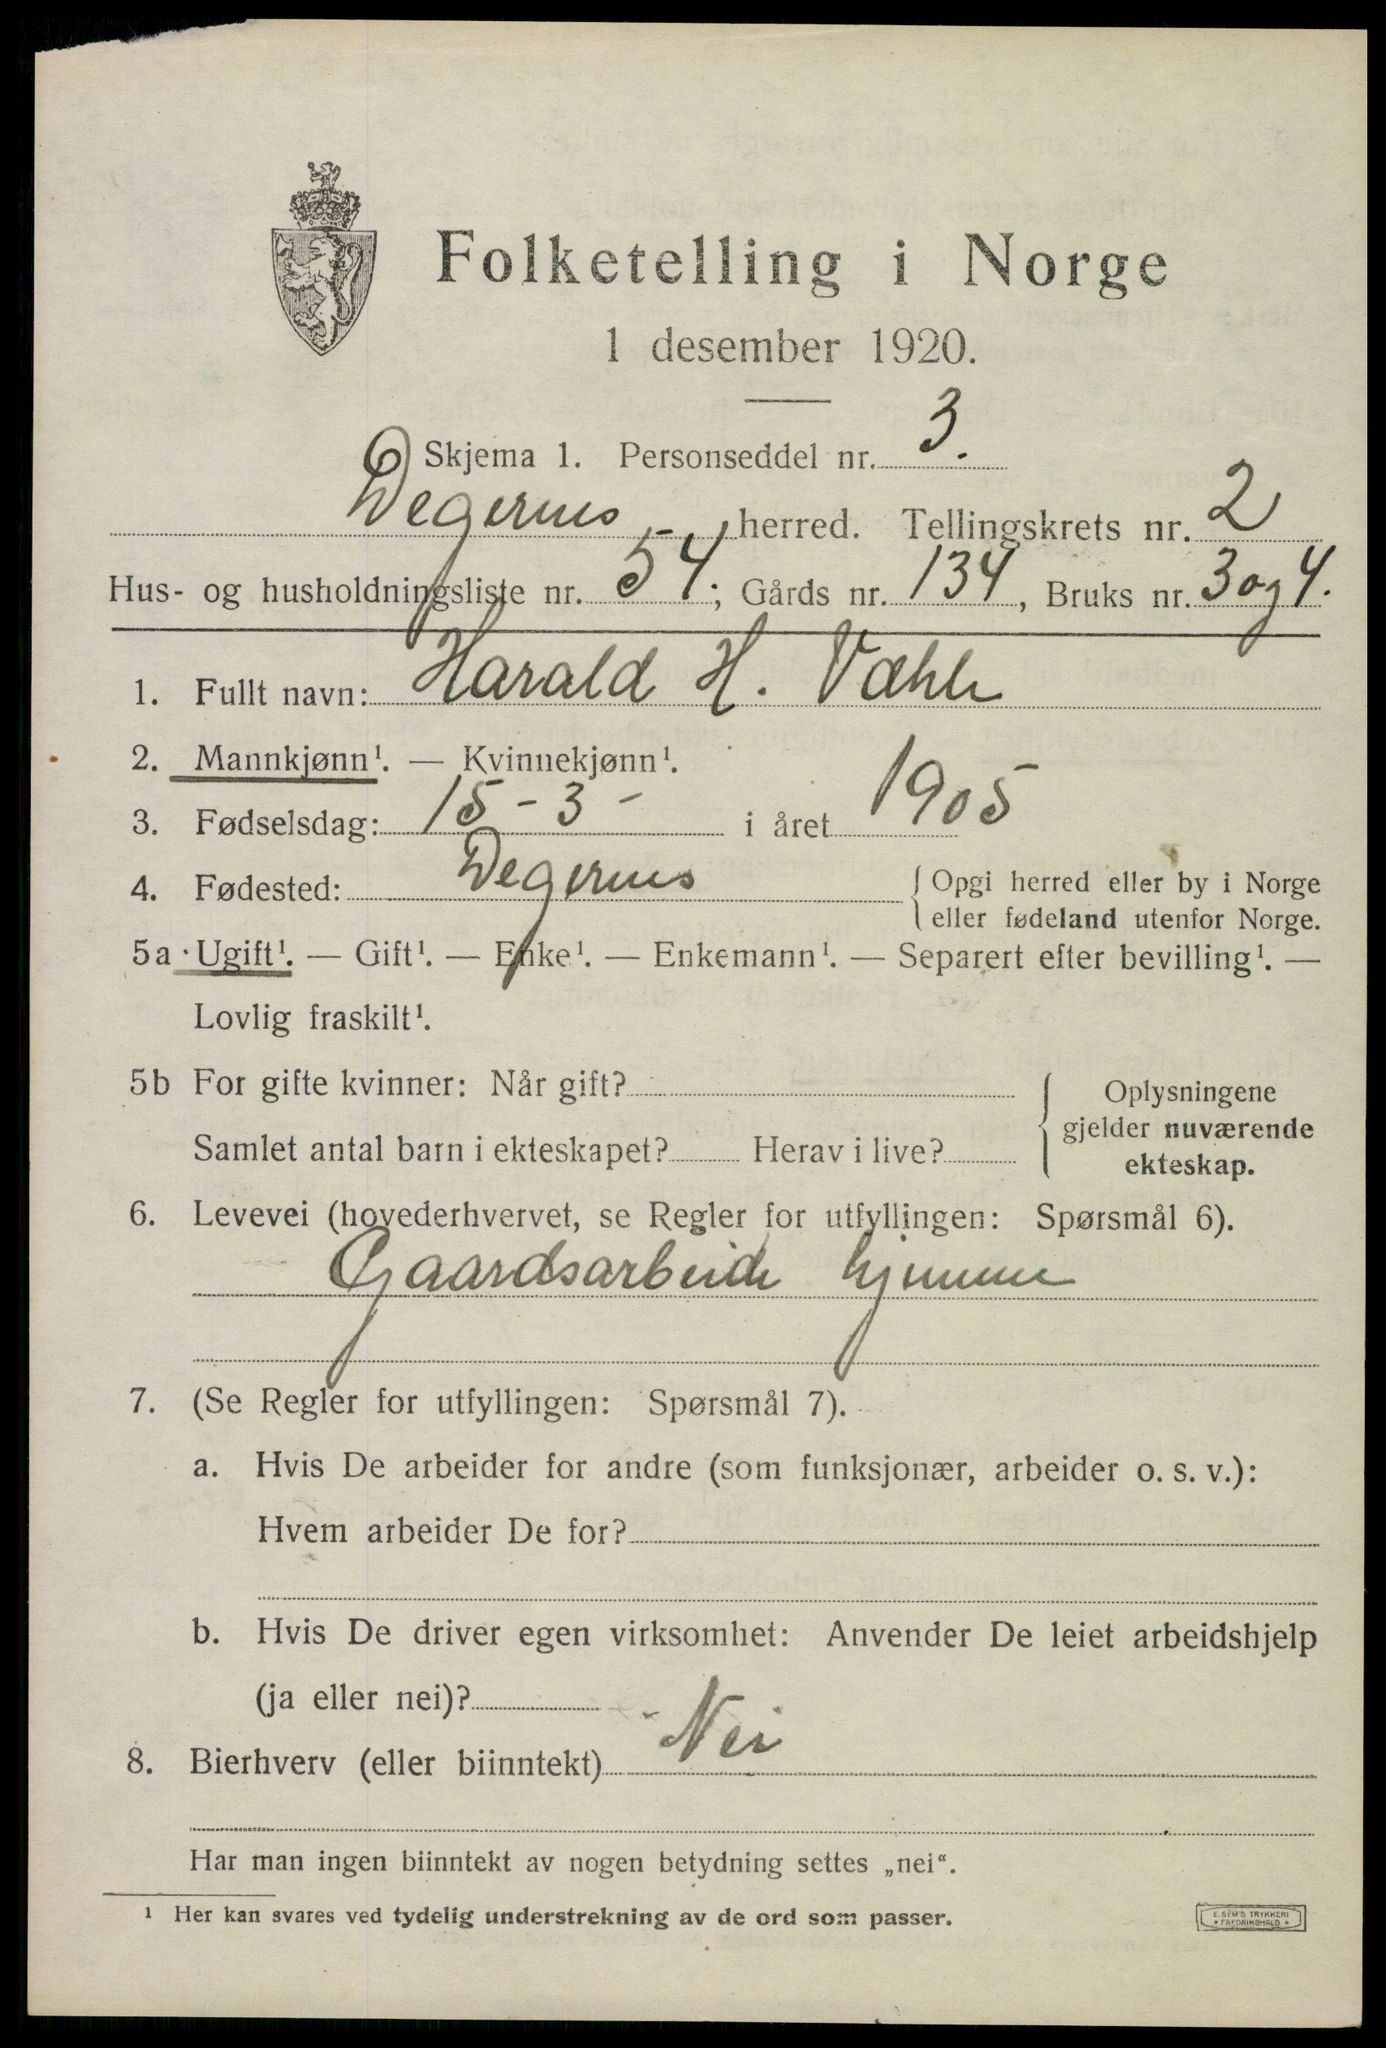 Folketelling i Norge
1 desember 1920.
Skjema 1. Personseddel nr. 3.
Degernes herred. Tellingskrets nr. 2
Hus- og husholdningsliste nr. 54; Gårds nr. 134, Bruks nr. 3 og 4.
1. Fullt navn: Harald H. Væhle
2. Mannkjønn¹. — Kvinnekjønn¹.
3. Fødselsdag: 15 - 3 - i året 1905
4. Fødested: Degernes { Opgi herred eller by i Norge
eller fødeland utenfor Norge.
5a Ugift¹. — Gift¹. — Enke¹. — Enkemann¹. — Separert efter bevilling¹. —
Lovlig fraskilt¹.
5b For gifte kvinner: Når gift?
Samlet antal barn i ekteskapet? Herav i live?
Oplysningene
gjelder nuværende
ekteskap.
6. Levevei (hovederhvervet, se Regler for utfyllingen: Spørsmål 6).
Gaardsarbeide hjemme
7. (Se Regler for utfyllingen: Spørsmål 7).
a. Hvis De arbeider for andre (som funksjonær, arbeider o. s. v.):
Hvem arbeider De for?
b. Hvis De driver egen virksomhet: Anvender De leiet arbeidshjelp
(ja eller nei)?
8. Bierhverv (eller biinntekt) Nei
Har man ingen biinntekt av nogen betydning settes „nei“.
¹ Her kan svares ved tydelig understrekning av de ord som passer.
E. SEM'S TRYKKERI
• FREDRIKSHALD •